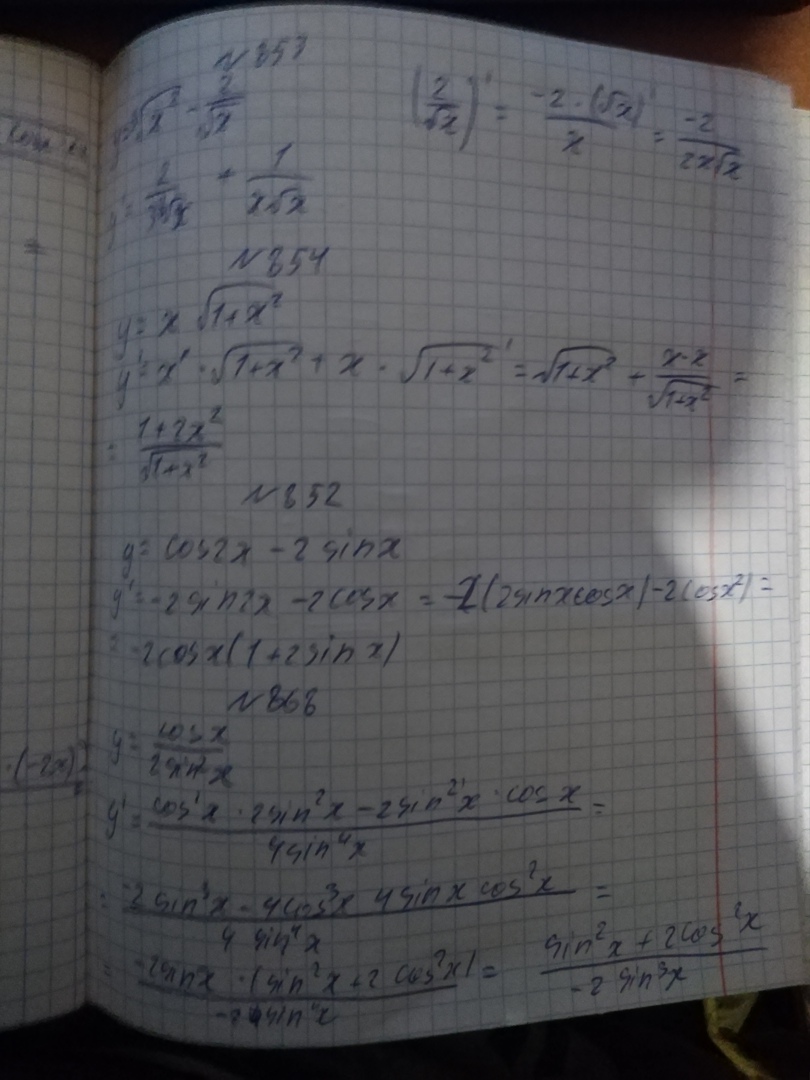 N 853
y = ∛x² - 2/√x (2/√x)' = -2·(√x)'/x = -2/2x√x
y' = 2/3∛x + 1/x√x
N 854
y = x √1+x²
y' = x' · √1+x² + x · √1+x²' = √1+x² + x·x/√1+x² =
= 1+2x²/√1+x²
N 852
y = cos2x - 2 sinx
y' = -2sin2x - 2cosx = -2(2sinxcosx) - 2cosx²) =
= -2cosx(1+2sinx)
N 868
y = cosx/2sin²x
y' = cos'x · 2sin²x - 2sin²'x · cosx/4sin⁴x =
= -2sin³x - 4sinx cos²x/4 sin⁴x =
= -2sinx · (sin²x + 2cos²x)/sin⁴x = sin²x + 2cos²x/-2 sin³x
· (-2x)
=